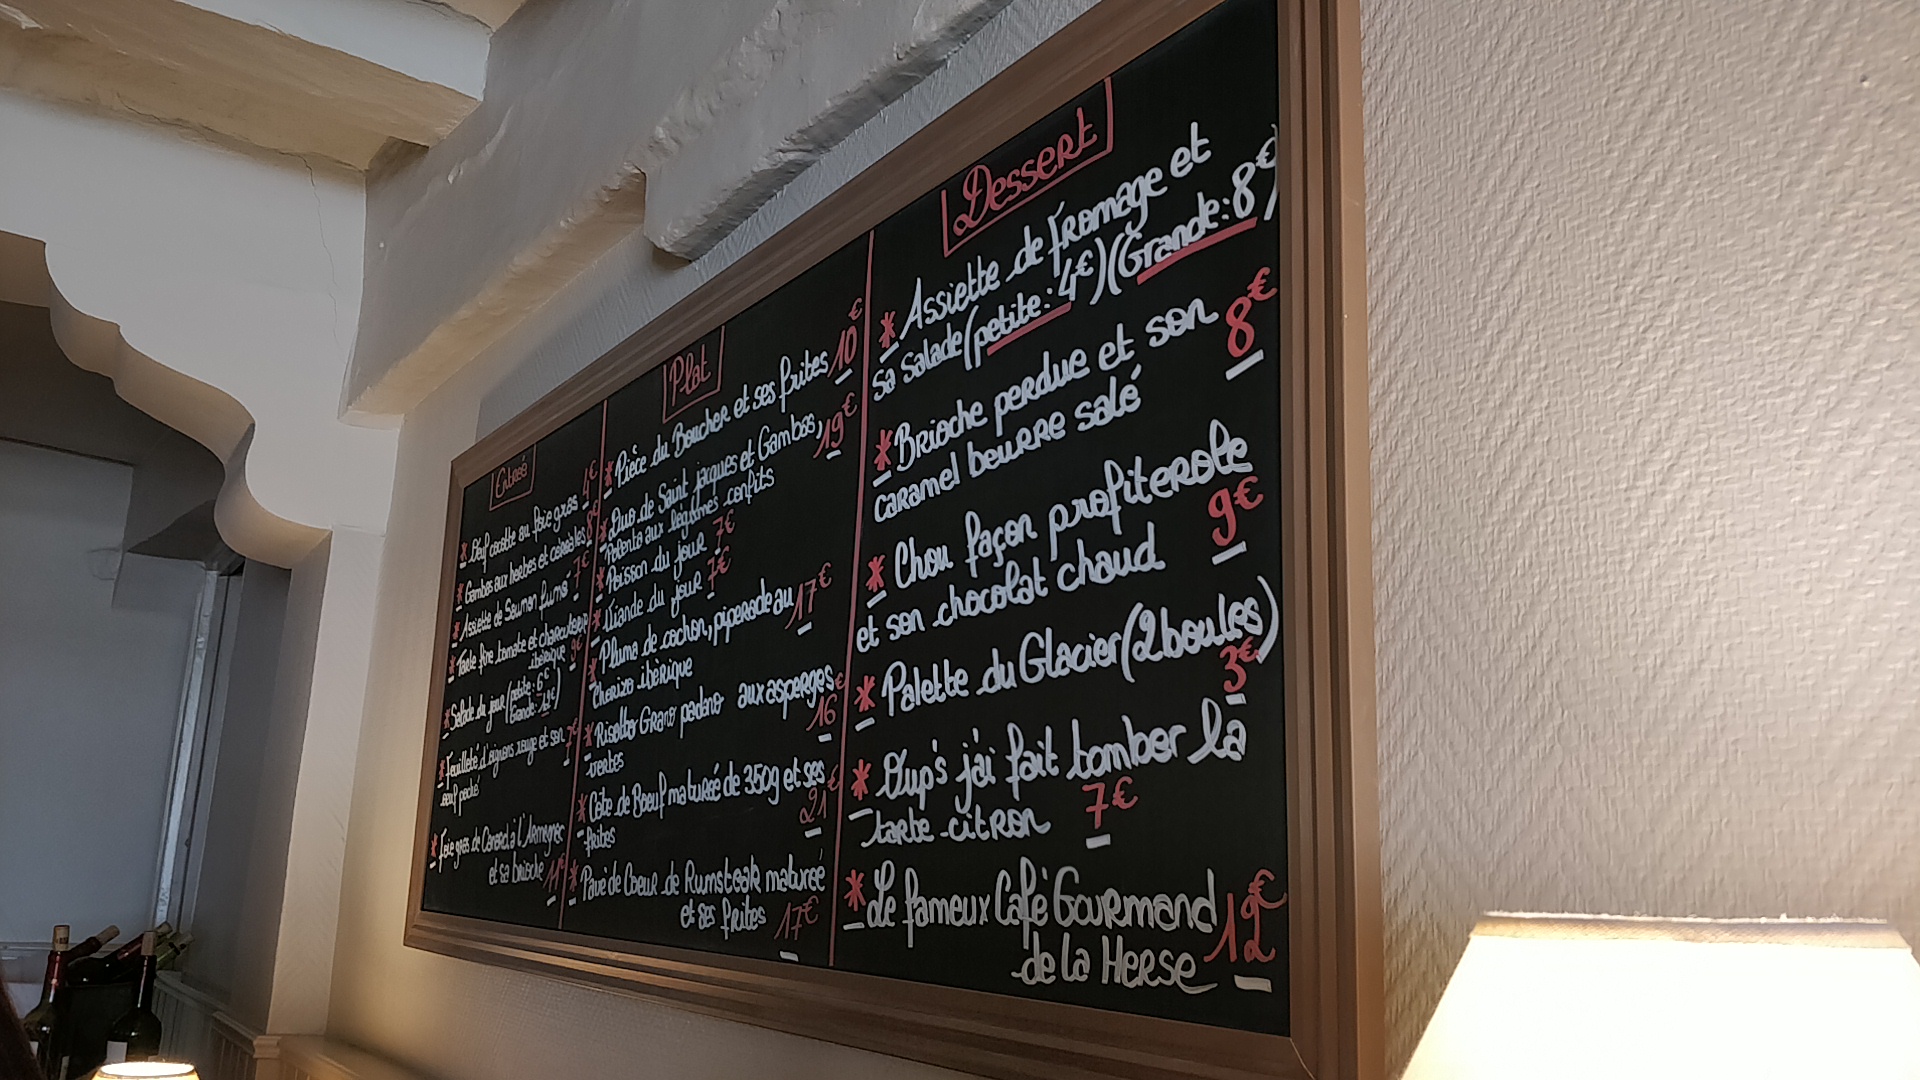 Entrée
* Œuf cocotte au foie gras 4€
* Gambas aux herbes et céréales 8€
* Assiette de Saumon fumé 7€
* Tarte fine tomate et charcuterie
ibérique 9€
* Salade du jour (petite: 6€
Grande: 12€)
* Feuilleté d'oignons rouge et son 7€
œuf poché
* Foie gras de Canard à l'Armagnac
et sa brioche 11€
Plat
* Pièce du Boucher et ses frites 10€
* Duo de Saint jacques et Gambas, 19€
Polenta aux légumes confits
* Poisson du jour 7€
* Viande du jour 7€
* Pluma de cochon, piperade au 17€
Chorizo ibérique
* Risotto Grana padano aux asperges
vertes 16€
* Côte de Boeuf maturée de 350g et ses
frites 21€
* Pavé de Coeur de Rumsteak maturée
et ses frites 17€
Dessert
* Assiette de fromage et
sa salade (petite: 4€) (Grande: 8€)
* Brioche perdue et son 8€
caramel beurre salé
* Chou façon profiterole
et son chocolat chaud 9€
* Palette du Glacier (2 boules)
3€
* Oup's j'ai fait tomber la
tarte citron 7€
* Le fameux Café Gourmand
de la Herse 12€